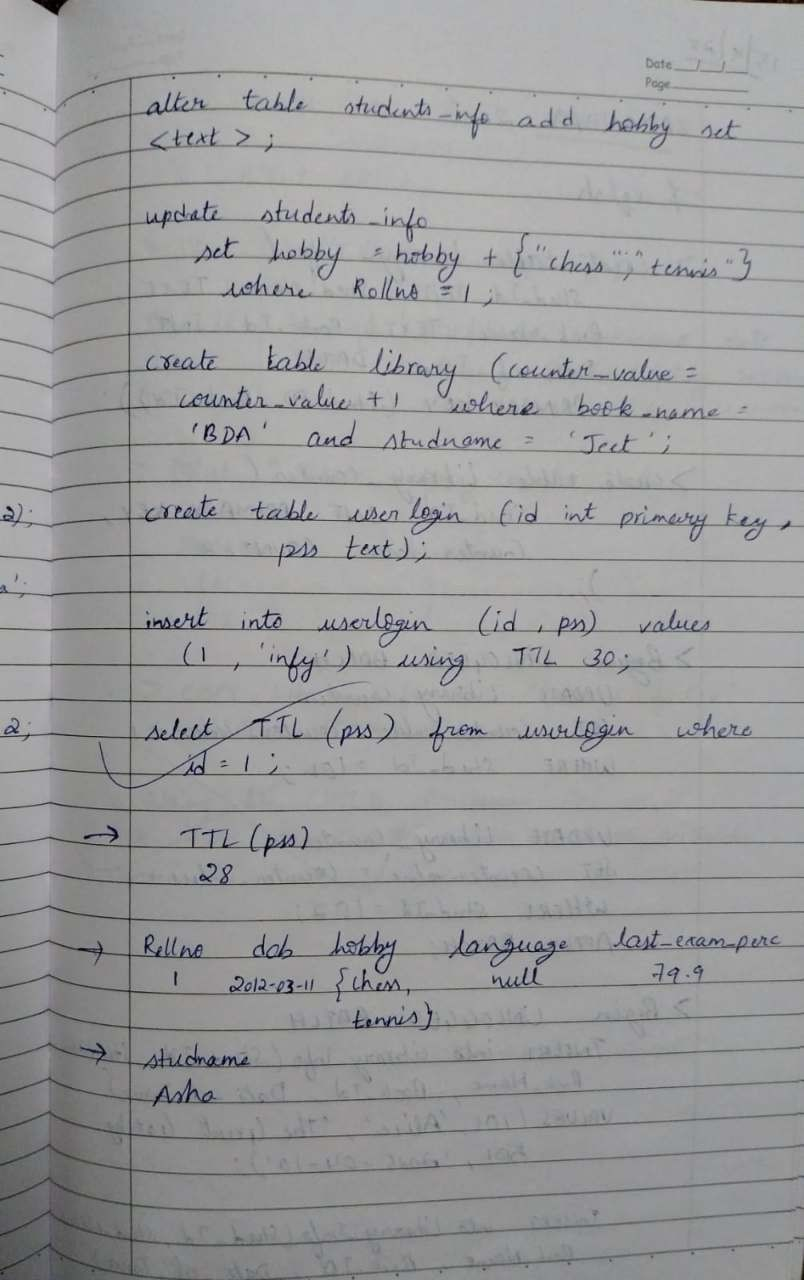 Date
Page
alter table students_info add hobby set
<text>;
update students_info
set hobby = hobby + {"chess", "tennis"}
where Rollno = 1;
create table library (counter_value =
counter_value + 1 where book_name =
'BDA' and studname = 'Jeet';
2);
create table userlogin (id int primary key,
pss text);
a';
insert into userlogin (id, pss) values
(1, 'infy') using TTL 30;
2;
select TTL (pss) from userlogin where
id = 1;
→ TTL (pss)
28
→ Rollno dob hobby language last_exam_perc
1 2012-03-11 {chess, null 79.9
tennis}
→ studname
Asha